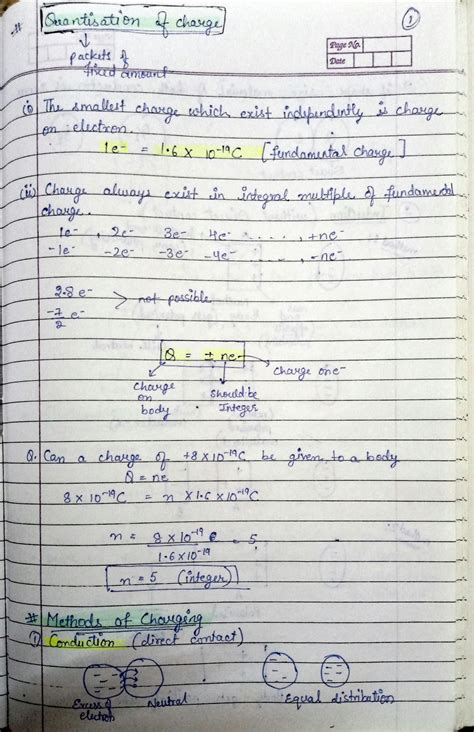 # Quantisation of charge
①
Page No.
Date
packets of
fixed amount
(i) The smallest charge which exist independently is charge
on electron.
1e⁻ = 1.6 × 10⁻¹⁹C [fundamental charge]
(ii) Charge always exist in integral multiple of fundamental
charge.
1e⁻, 2e⁻ 3e⁻ 4e⁻ . . . . , +ne⁻
-1e⁻ -2e⁻ -3e⁻ -4e⁻ . . . . , -ne⁻
2.8e⁻
-7/2 e⁻
not possible
Q = ± ne⁻
charge one⁻
Charge
on
body
Should be
Integer
Q. Can a charge of +8×10⁻¹⁹C be given to a body
Q = ne
8 × 10⁻¹⁹C = n × 1.6 × 10⁻¹⁹C
n = 8 × 10⁻¹⁹ / 1.6×10⁻¹⁹ = 5
n = 5 (integer)
# Methods of Charging
(i) Conduction (direct contact)
Excess of
electron
Neutral
Equal distribution